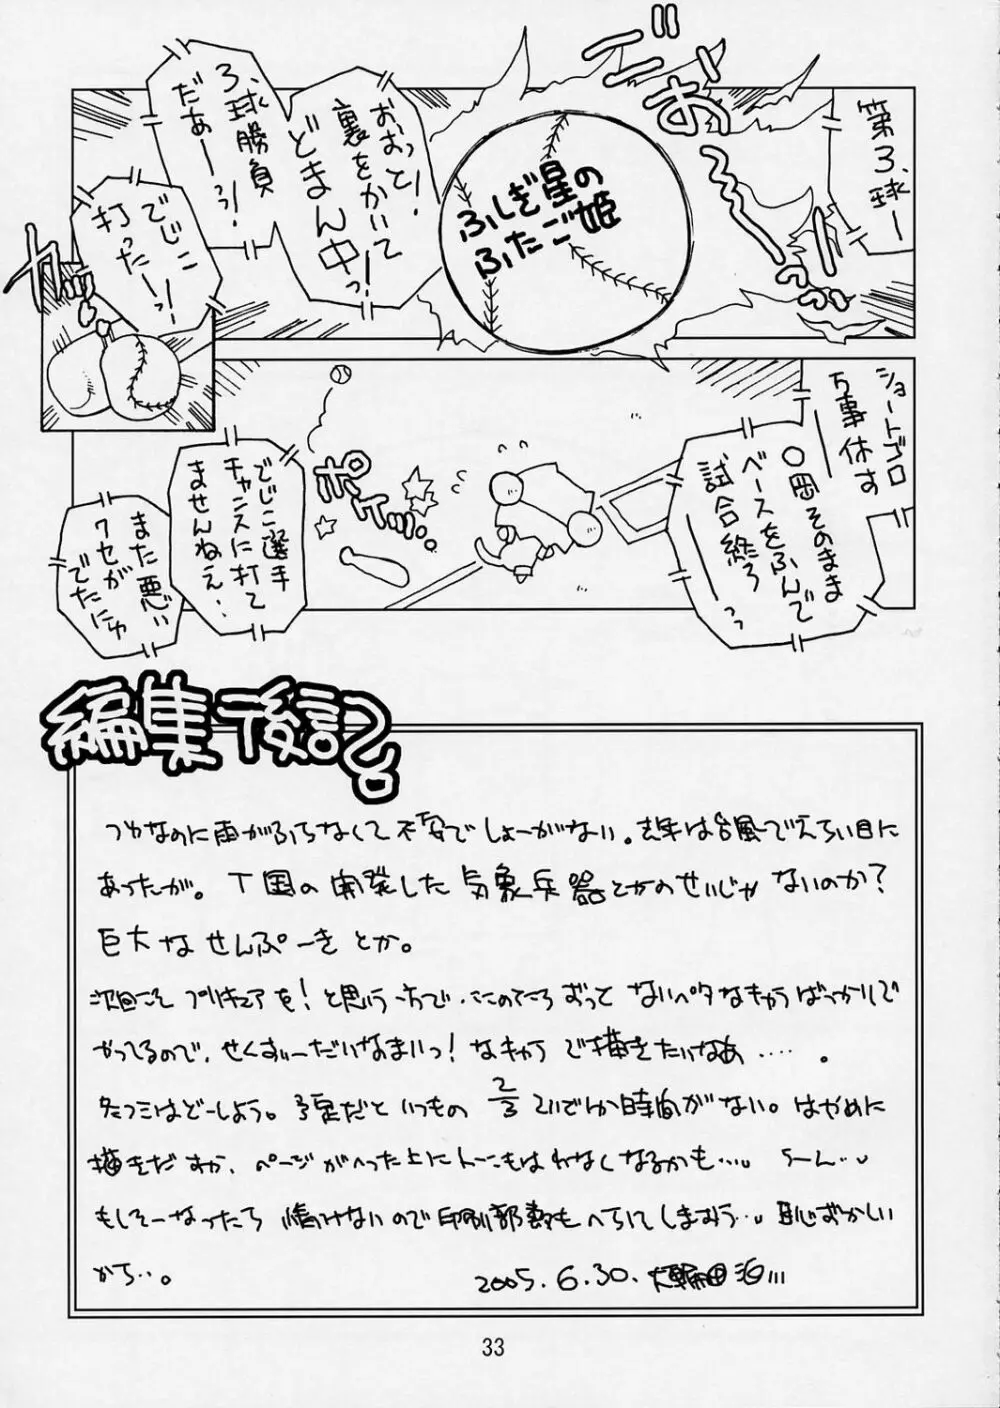 第3球ー
びゅお
〜〜っっ
ふしぎ星の
ふたご姫
おおっと!
裏をかいて
どまん中っ!
3球勝負
だあーっ!
でじこ
打ったーっ!
カッ
ショートゴロ
万事休す
〇岡そのまま
ベースをふんで
試合終了
ーっっ
ポイッ…
でじこ選手
チャンスに打て
ませんねえ…
また悪い
クセが
でたにゅ
編集後記。
つゆなのに雨がふらなくて不安でしょーがない。去年は台風でえらい目に
あったが。T国の開発した気象兵器とかのせいじゃないのか?
巨大なせんぷーきとか。
次回こそプリキュアを!と思う一方で、ここのところずっとないペタなキャラばっかりで
やってるので、せくすぃーだいなまいっ!なキャラで描きたいなあ……。
冬コミはどーしよう。予定だといつもの2/3くらいしか時間がない。はやめに
描きだすか、ページがへった上にトーンもはれなくなるかも…。うーん…。
もしそーなったら情けないので印刷部数もへらしてしまおう…。恥ずかしい
から…。
2005.6.30.大輪田泊
33